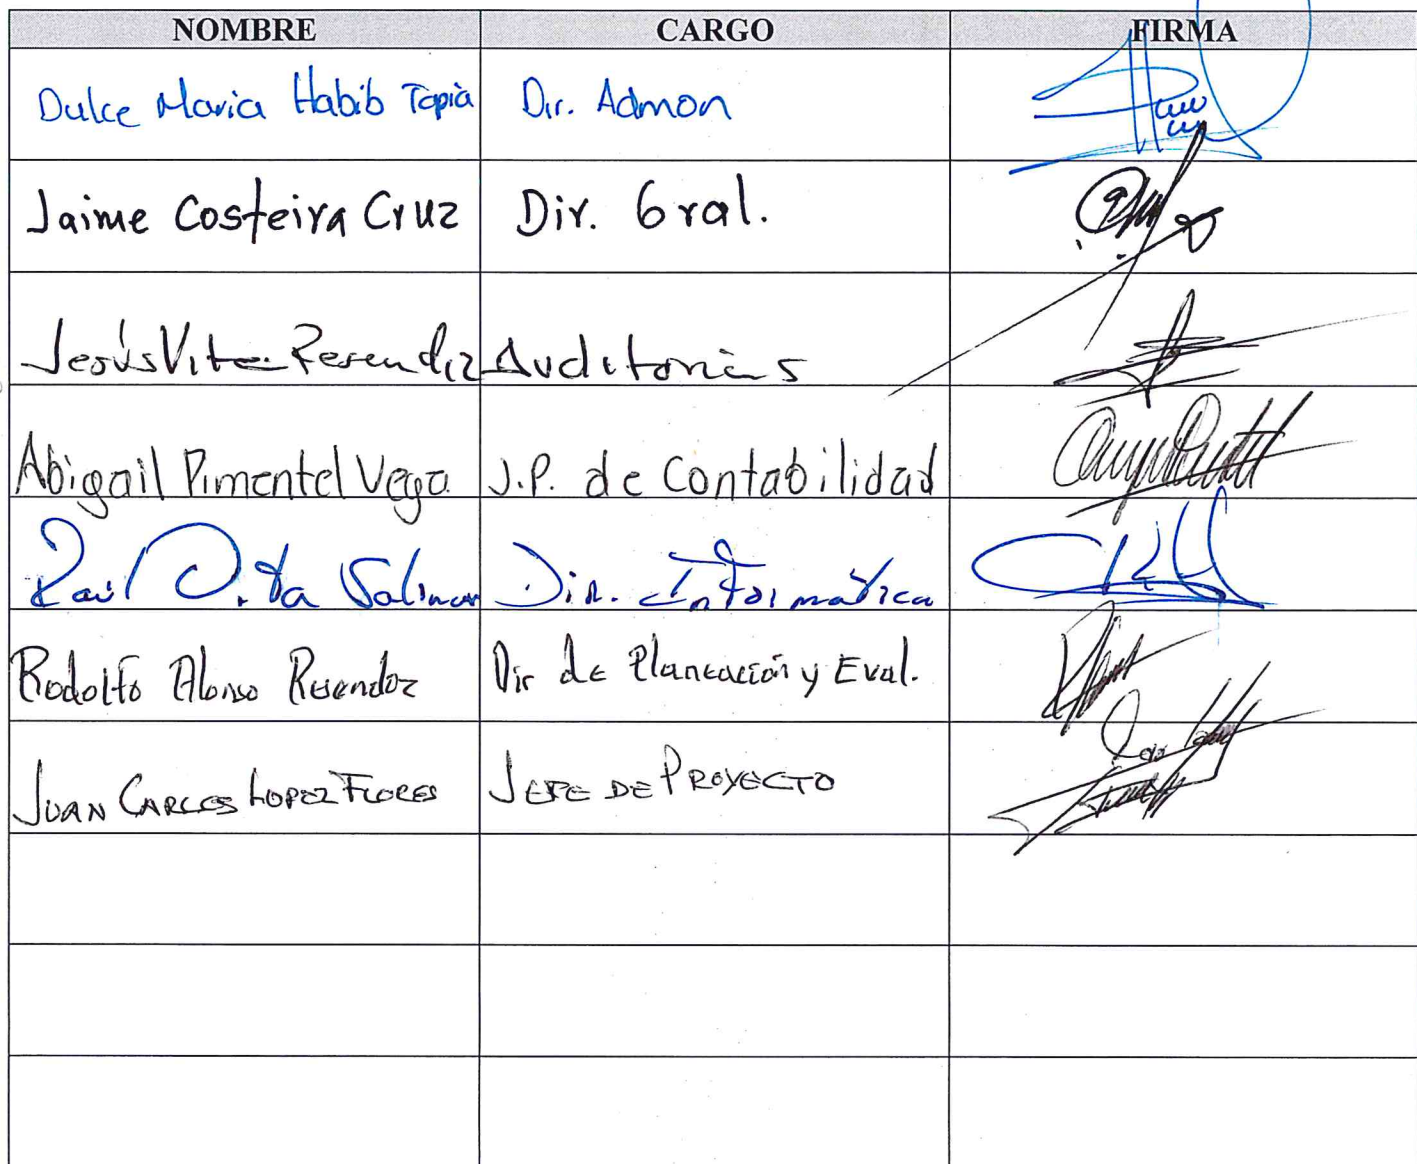 NOMBRE CARGO FIRMA
Dulce Maria Habib Tapia Dir. Admon
Jaime Costeira Cruz Dir. Gral.
Jesús Vite Resendiz Auditorias
Abigail Pimentel Vega J.P. de Contabilidad
Raúl Salinas Dir. Informática
Rodolfo Alonso Resendiz Dir de Planeación y Eval.
JUAN CARLOS LOPEZ FLORES JEFE DE PROYECTO